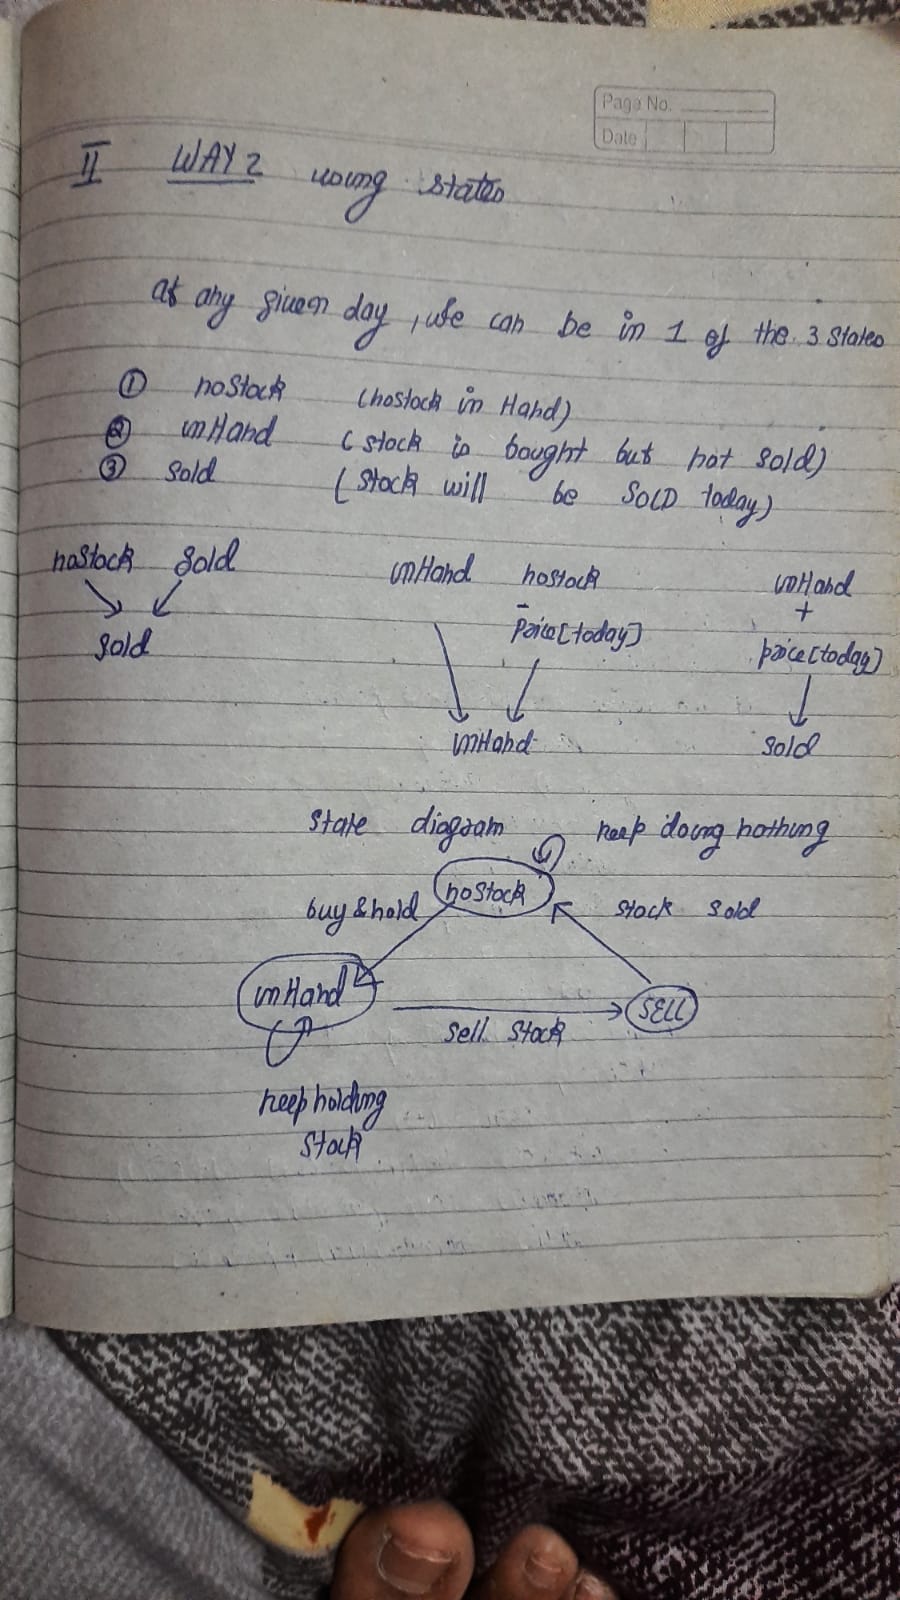 Page No.
Date
II WAY 2 using states
at any given day, we can be in 1 of the 3 states
① noStock (nostock in Hand)
② inHand (stock is bought but not sold)
③ sold (stock will be SOLD today)
noStock sold inHand noStock inHand
- +
sold price[today] price[today]
inHand sold
state diagram keep doing nothing
noStock
buy & hold stock sold
inHand SELL
sell stock
keep holding
stock